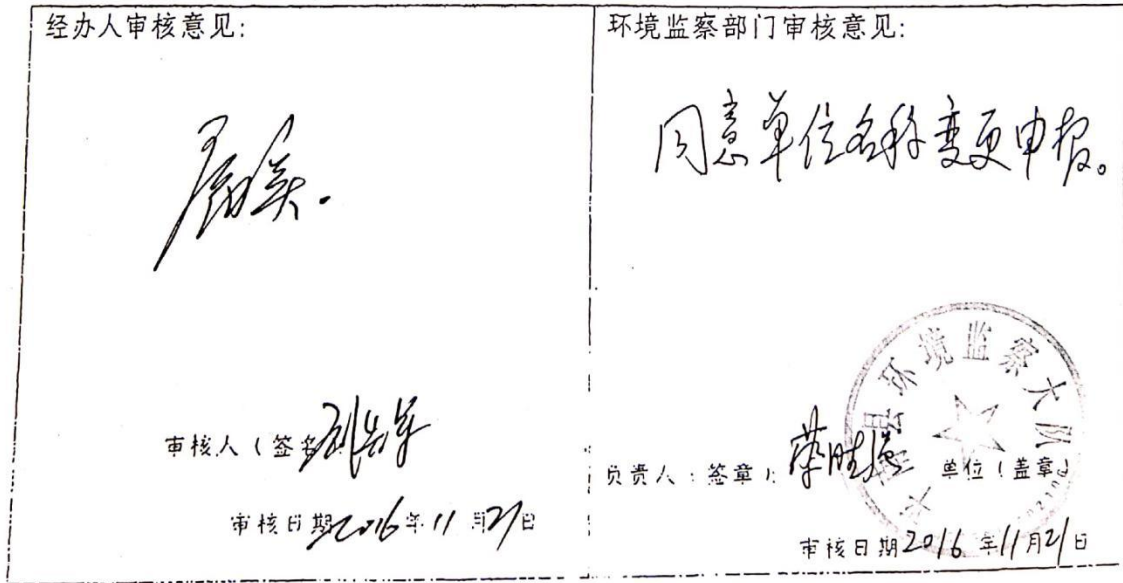 经办人审核意见:
属实.
审核人(签名
审核日期2016年11月21日
环境监察部门审核意见:
同意单位名称变更申报。
环境监察大队
负责人(签章): 单位(盖章)
审核日期2016年11月21日